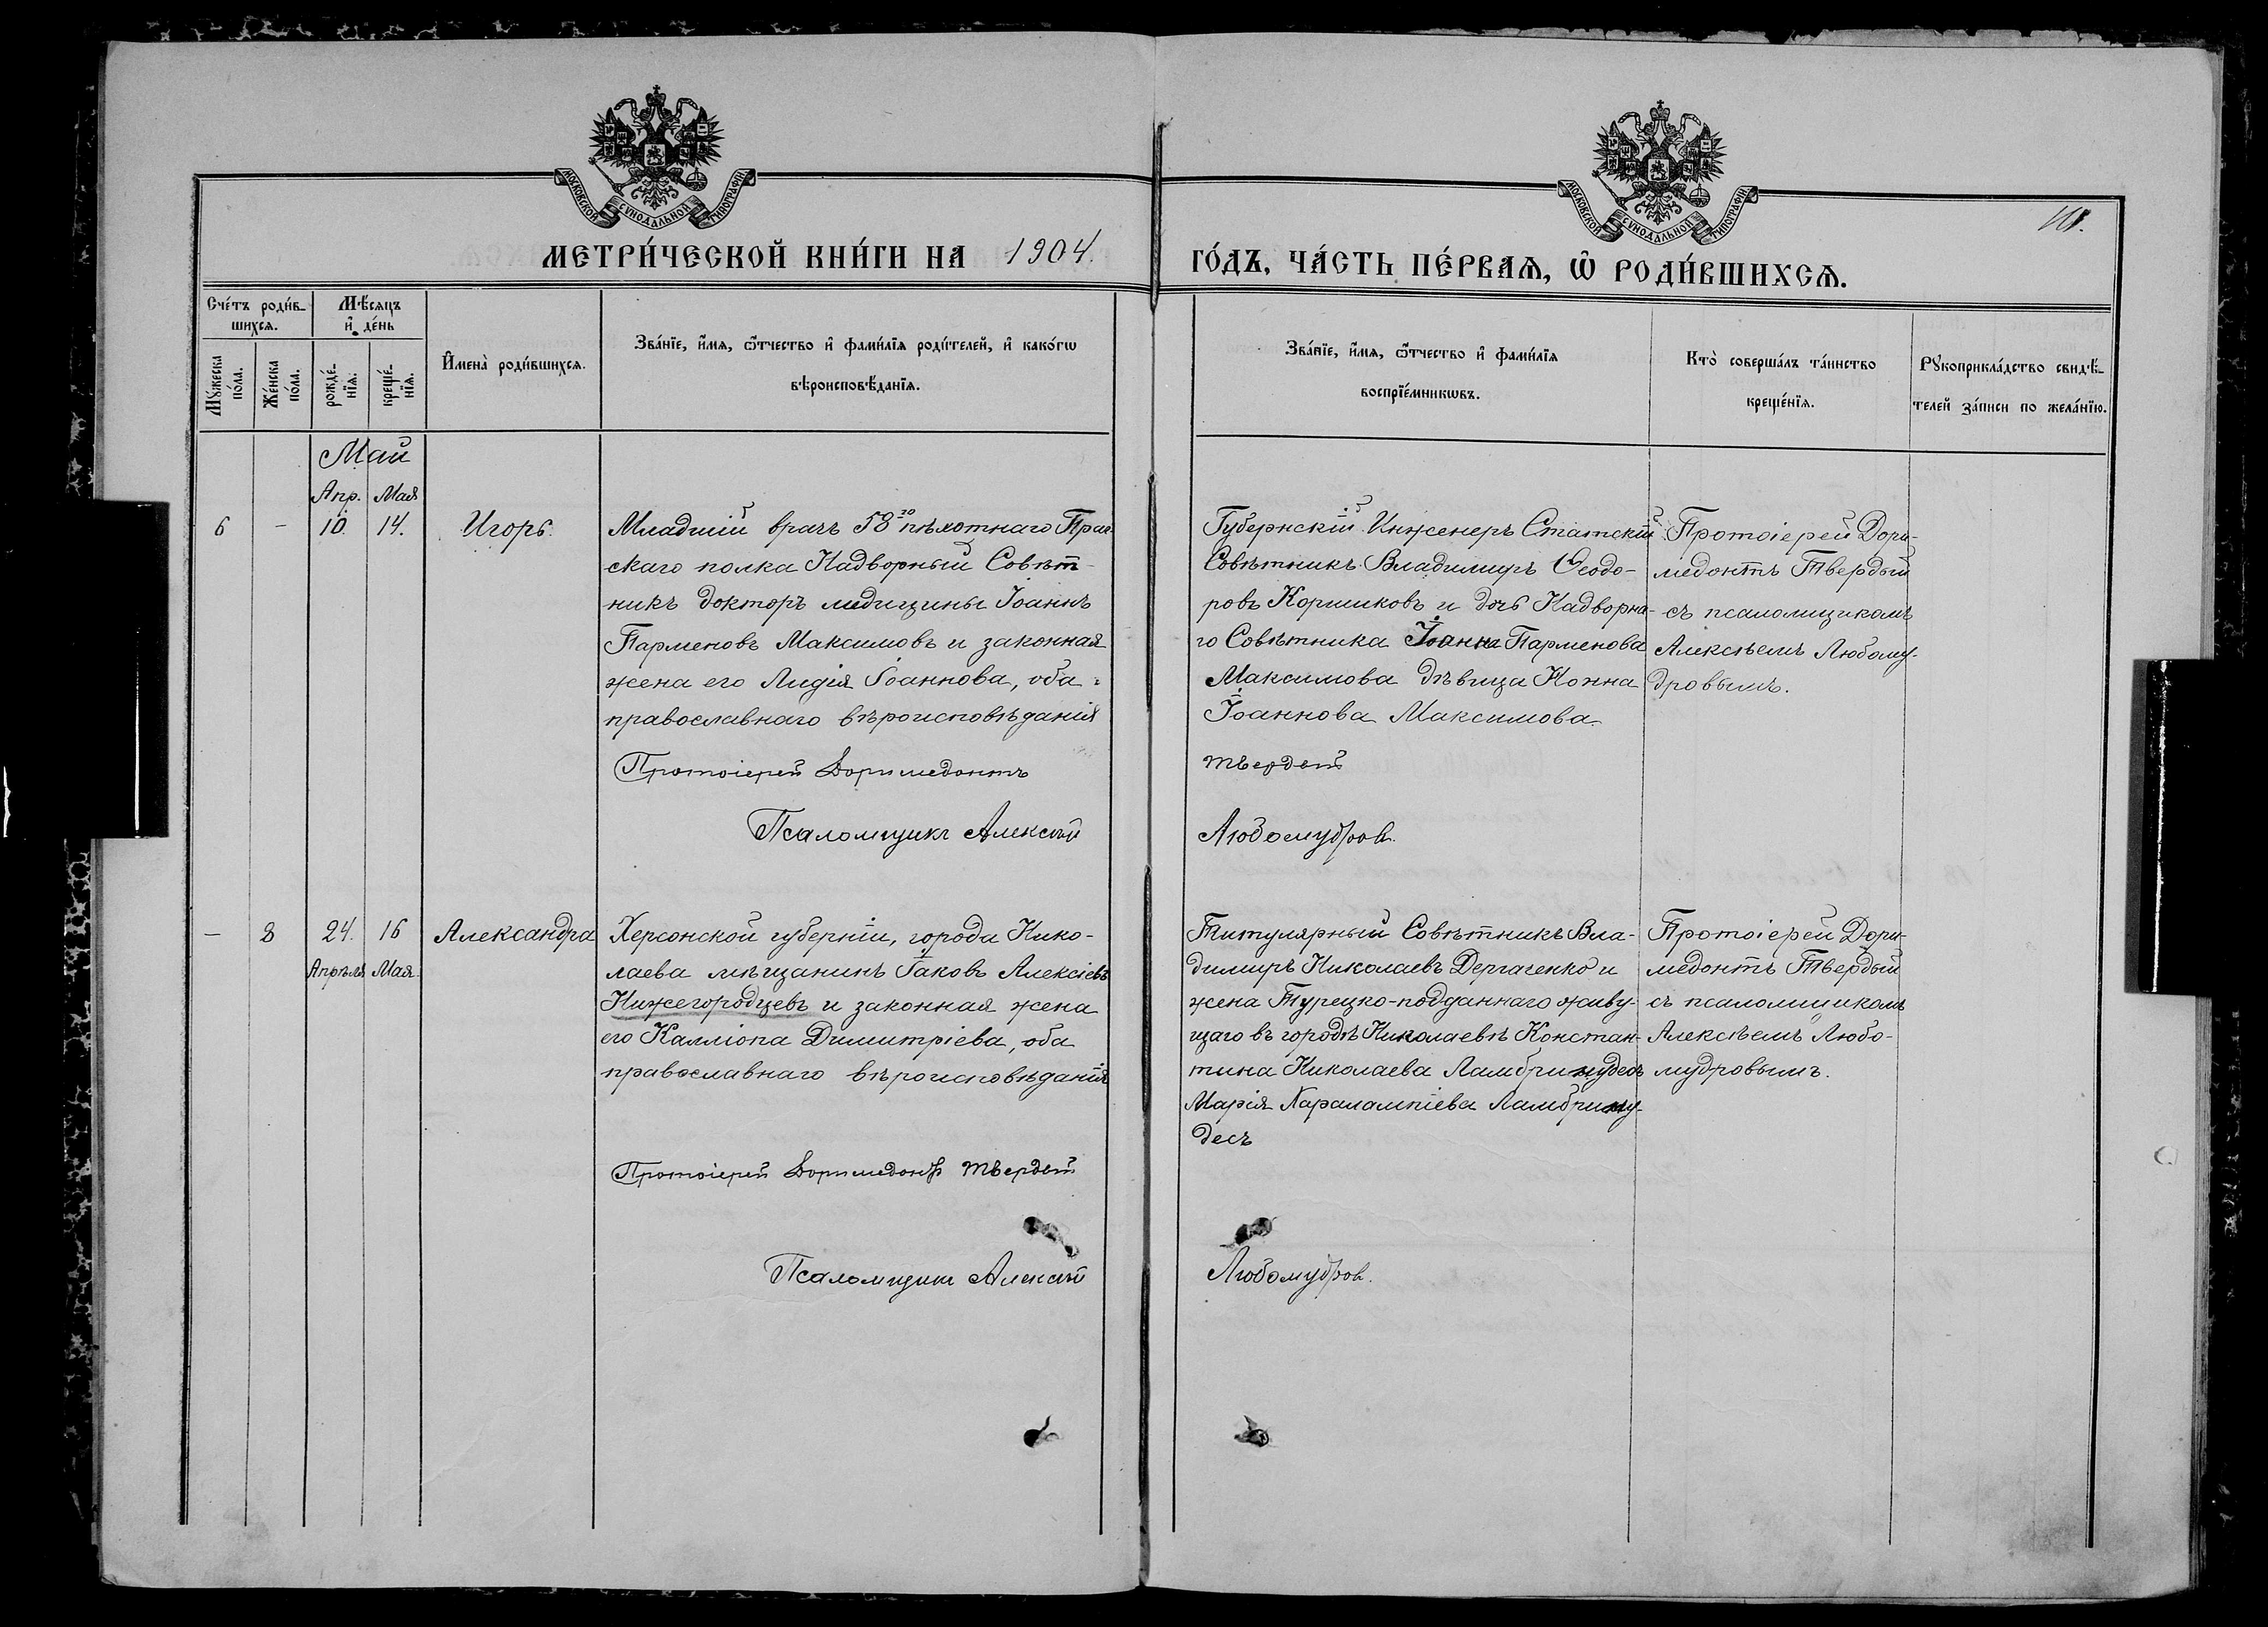 МОСКОВСКОЙ СѴНОДАЛЬНОЙ ТИПОГРАФІИ
МОСКОВСКОЙ СѴНОДАЛЬНОЙ ТИПОГРАФІИ
МЕТРИ́ЧЕСКОЙ КНИ́ГИ НА 1904.
ГО́ДЪ, ЧА́СТЬ ПЕ́РВАѦ, Ѽ РОДИ́ВШИХСѦ.
Сче́тъ роди́в-
шихсѧ.
Мꙋ́жеска
по́ла.
Же́нска
по́ла.
Мѣ́сѧцъ
и҆ де́нь
рожде́-
нїѧ.
креще́-
нїѧ.
И҆мена̀ роди́вшихсѧ.
Зва́нїе, и҆́мѧ, ѻ҆́тчество и҆ фами́лїѧ роди́телей, и҆ како́гѡ
вѣроисповѣ́данїѧ.
Зва́нїе, и҆́мѧ, ѻ҆́тчество и҆ фами́лїѧ
воспрїе́мникѡвъ.
Кто̀ соверша́лъ та́инство
креще́нїѧ.
Рꙋкоприкла́дство свидѣ́-
телей за́писи по жела́нїю.
Май
Апр. Мая
6 - 10. 14. Игорь.
Младшій врачъ 58го пѣхотнаго Праг
скаго полка Надворный Совѣт-
никъ докторъ медицины Іоаннъ
Парменовъ Максимовъ и законная
жена его Лидія Іоаннова, оба
православнаго вѣроисповѣданія
Протоіерей Доримедонтъ
Псаломщикъ Алексѣй
Губернскій Инженеръ Статскій
Совѣтникъ Владимиръ Ѳеодо-
ровъ Коршиковъ и дочь Надворна-
го Совѣтника Іоанна Парменова
Максимова дѣвица Нонна
Іоаннова Максимова.
Твердый
Любомудров.
Протоіерей Дори-
медонтъ Твердый
съ псаломщикомъ
Алексѣемъ Любому-
дровымъ.
— 8 24. 16 Александра
Апрѣля Мая.
Херсонской губерніи, города Нико-
лаева мѣщанинъ Іаковъ Алексіевъ
Нижегородцевъ и законная жена
его Калліопа Димитріева, оба
православнаго вѣроисповѣданія
Протоіерей Доримедонтъ Твердый
Псаломщик Алексѣй
Титулярный Совѣтникъ Вла-
димиръ Николаевъ Дергаченко и
жена Турецко-подданнаго живу-
щаго въ городѣ Николаевѣ Констан-
тина Николаева Ламбринудесъ
Марія Харалампіева Ламбрину-
десъ
Любомудров.
Протоіерей Дори-
медонтъ Твердый
съ псаломщикомъ
Алексѣемъ Любо-
мудровымъ.